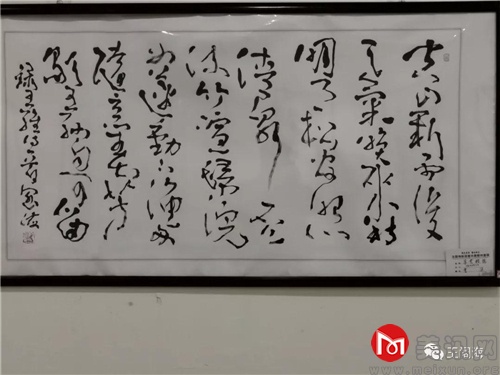 空山新雨後
天氣晚來秋
明月松间照
清泉石上
流竹喧歸浣
女蓮動下漁舟
隨意春芳
歇王孫自可留
錄王維詩一首
美讯网
www.meixun.org